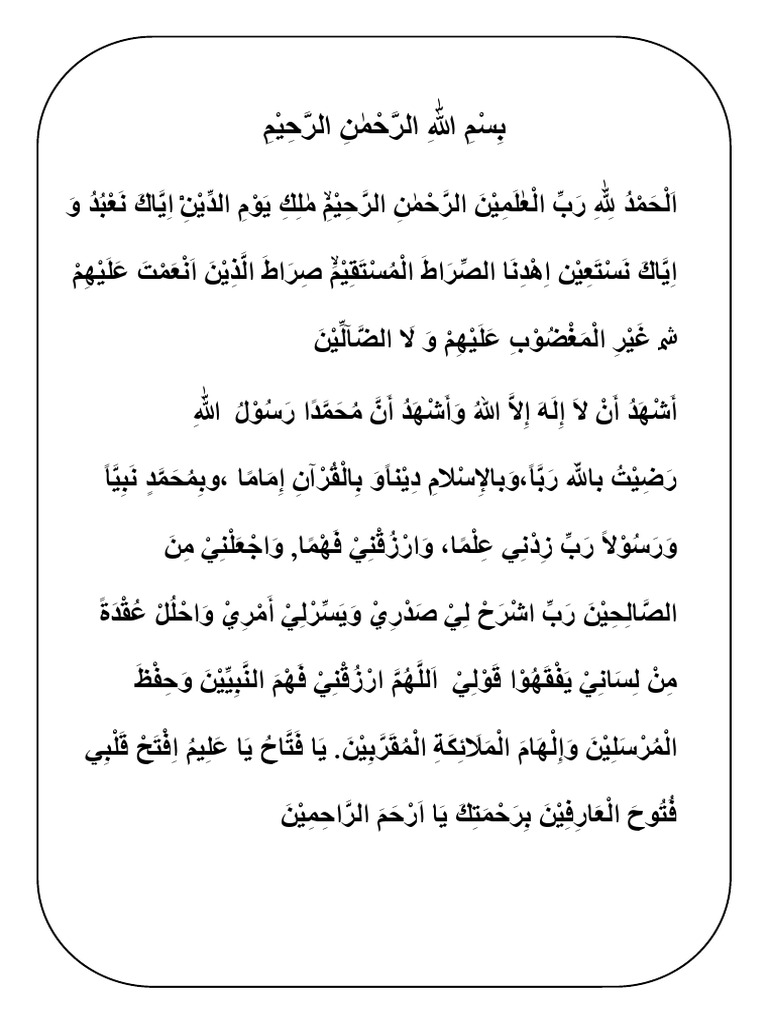 بِسْمِ اللّٰهِ الرَّحْمٰنِ الرَّحِيْمِ
اَلْحَمْدُ لِلّٰهِ رَبِّ الْعٰلَمِيْنَ الرَّحْمٰنِ الرَّحِيْمِۙ مٰلِكِ يَوْمِ الدِّيْنِۗ اِيَّاكَ نَعْبُدُ وَ
اِيَّاكَ نَسْتَعِيْن اِهْدِنَا الصِّرَاطَ الْمُسْتَقِيْمَۙ صِرَاطَ الَّذِيْنَ اَنْعَمْتَ عَلَيْهِمْ
غَيْرِ الْمَغْضُوْبِ عَلَيْهِمْ وَ لَا الضَّاۤلِّيْنَ
أَشْهَدُ أَنْ لاَ إِلَهَ إِلاَّ اللهُ وَأَشْهَدُ أَنَّ مُحَمَّدًا رَسُوْلُ اللّٰهِ
رَضِيْتُ بالله رَبَّاً،وَبالإِسْلامِ دِيْناًوَ بِالْقُرْآنِ إِمَامًا ،وبِمُحَمَّدٍ نَبِيَّاً
وَرَسُوْلاً رَبِّ زِدْنِي عِلْمًا، وَارْزُقْنِيْ فَهْمًا, وَاجْعَلْنِيْ مِنَ
الصَّالِحِيْنَ رَبِّ اشْرَحْ لِيْ صَدْرِيْ وَيَسِّرْلِيْ أَمْرِيْ وَاحْلُلْ عُقْدَةً
مِنْ لِسَانِيْ يَفْقَهُوْا قَوْلِيْ اَللَّهُمَّ ارْزُقْنِيْ فَهْمَ النَّبِيِّيْنَ وَحِفْظَ
الْمُرْسَلِيْنَ وَإِلْهَامَ الْمَلَائِكَةِ الْمُقَرَّبِيْنَ. يَا فَتَّاحُ يَا عَلِيمُ اِفْتَحْ قَلْبِي
فُتُوحَ الْعَارِفِيْنَ بِرَحْمَتِكَ يَا اَرْحَمَ الرَّاحِمِيْنَ